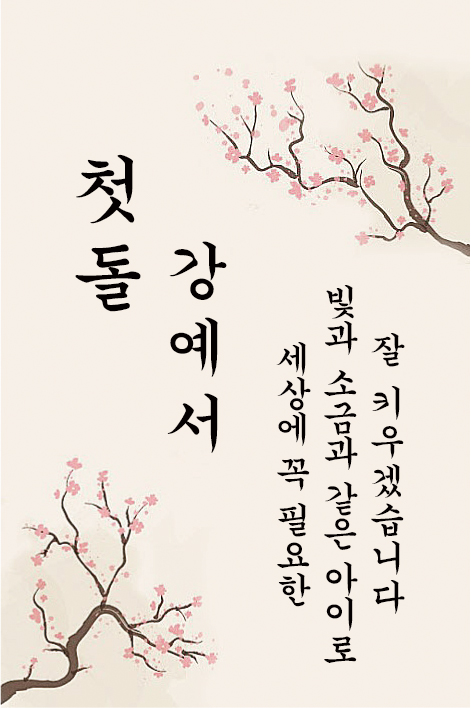 첫돌
강예서
세상에 꼭 필요한
빛과 소금과 같은 아이로
잘 키우겠습니다